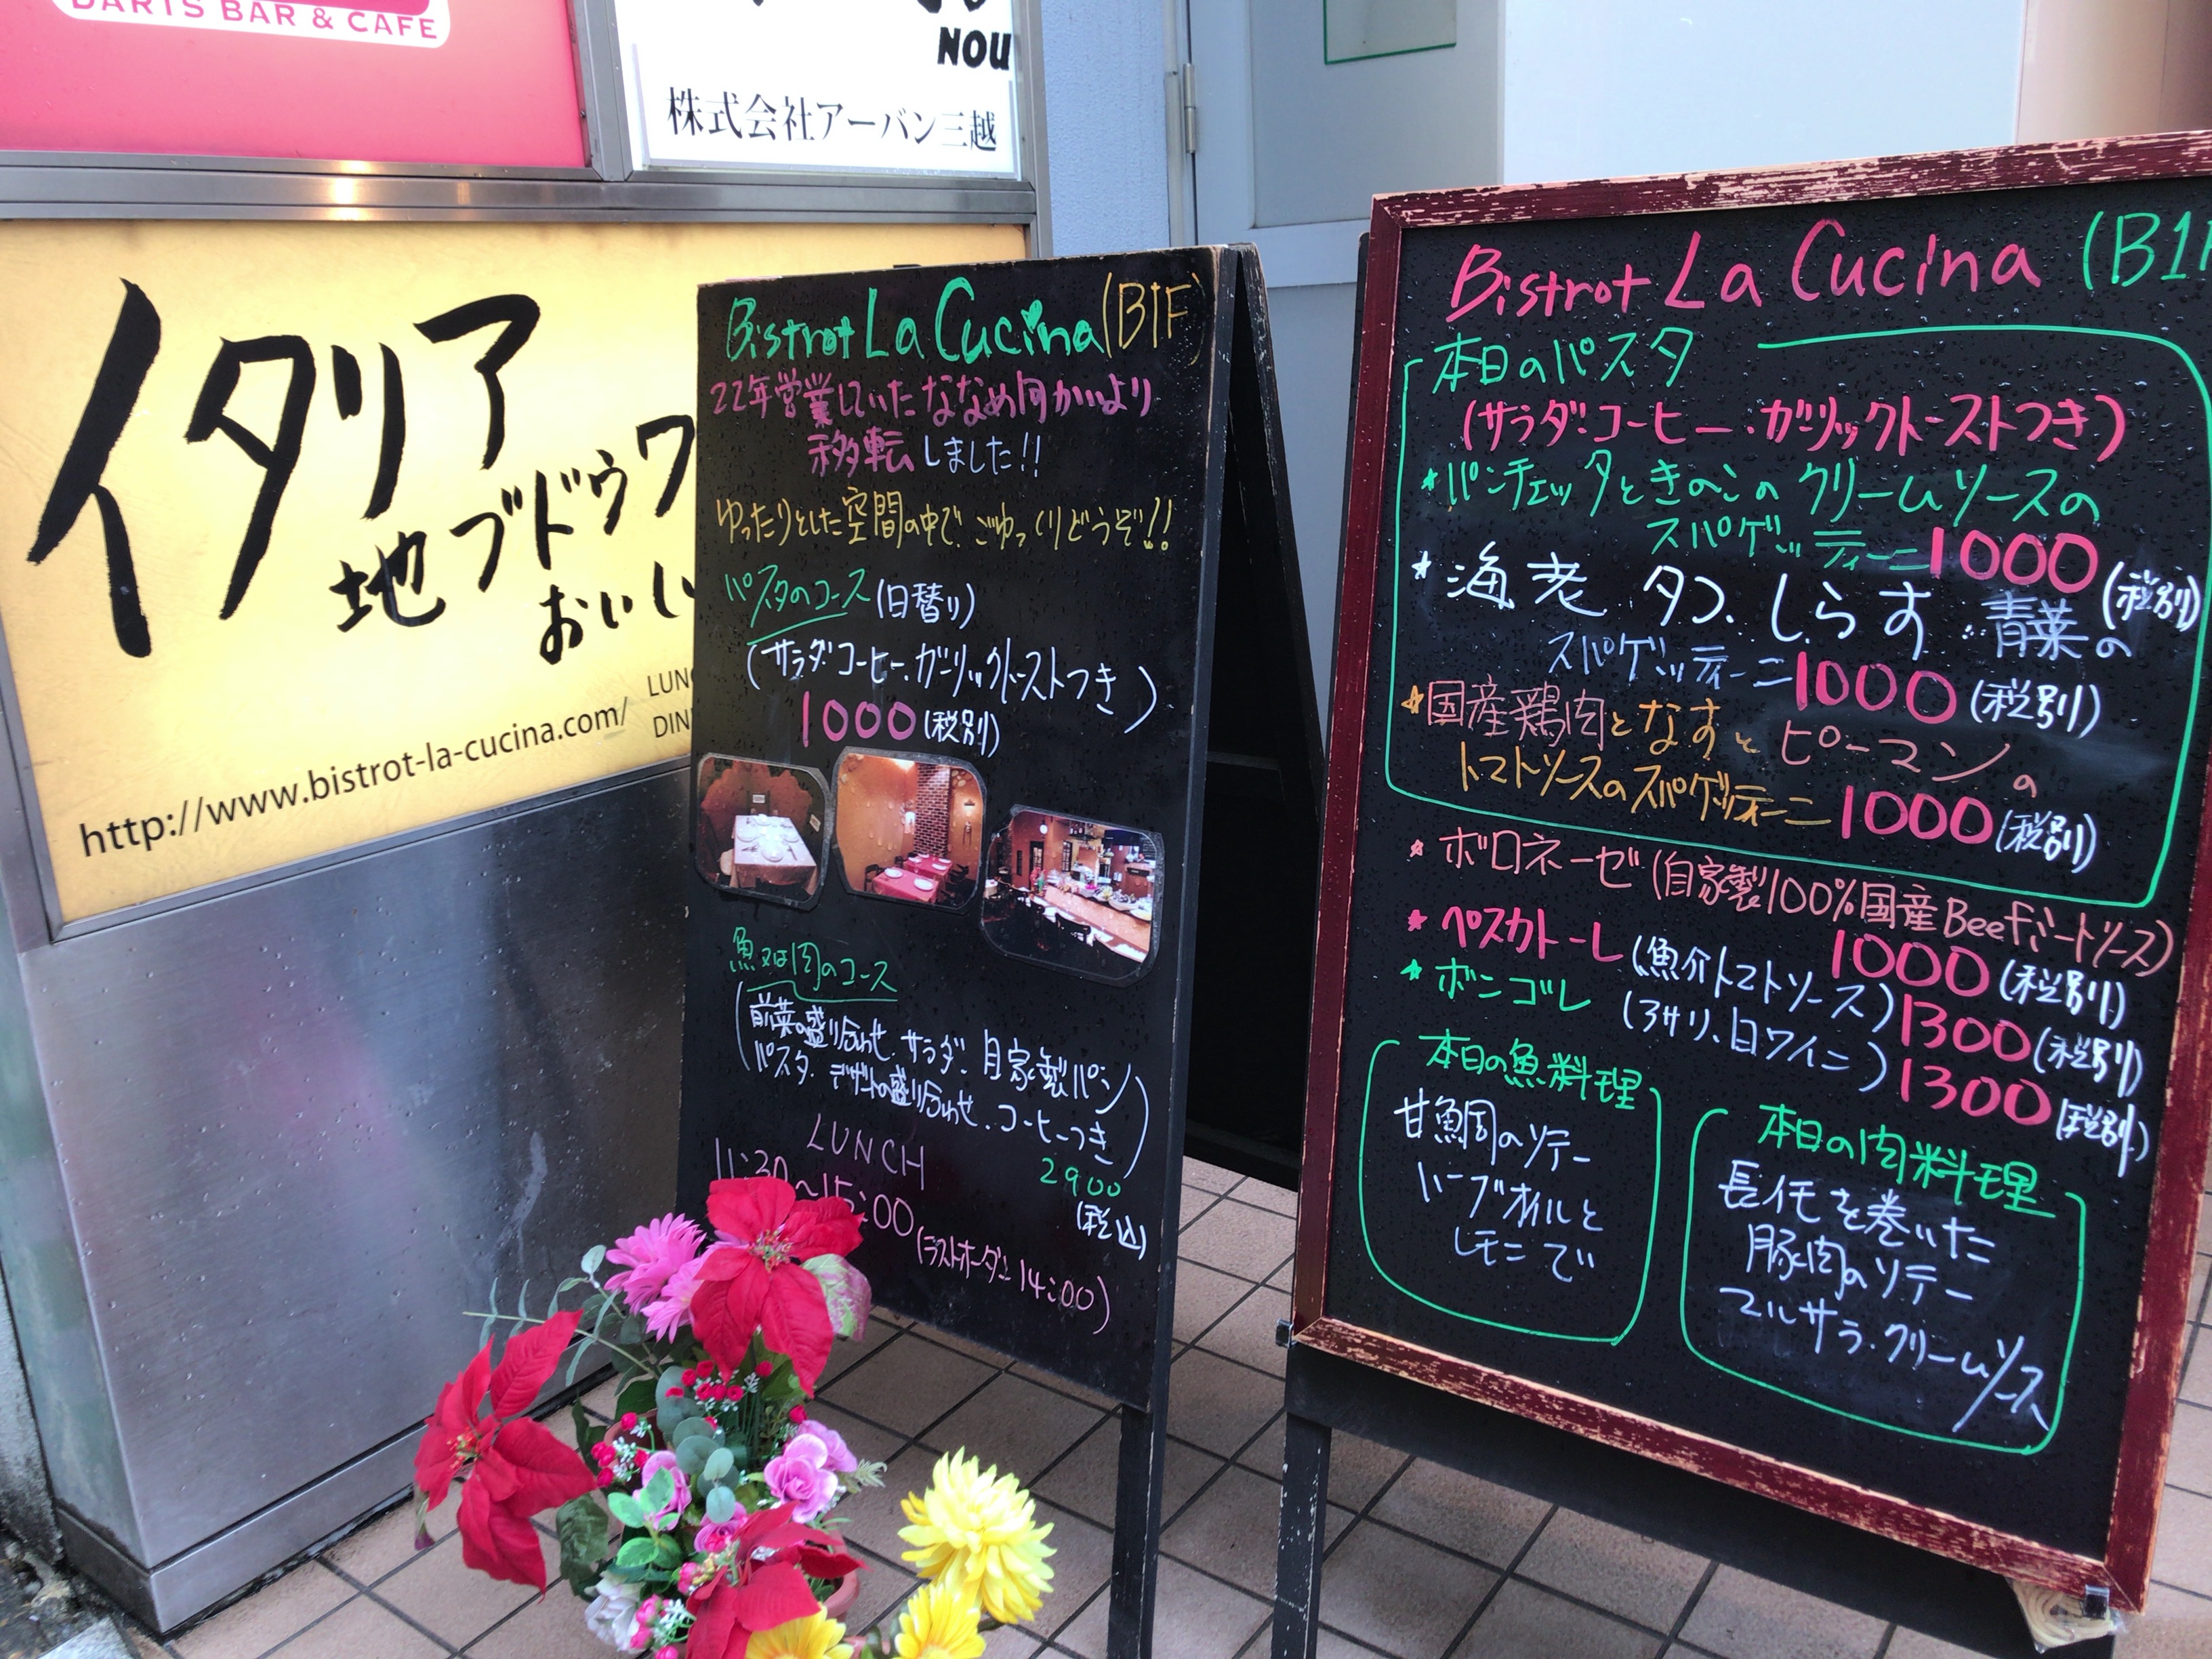 DARTS BAR & CAFE
NOU
株式会社アーバン三越
イタリア
地ブドウワ
おいし
LUNC
DIN
http://www.bistrot-la-cucina.com/
Bistrot La Cucina (B1F)
22年営業していたななめ向かいより
移転しました!!
ゆったりとした空間の中で、ごゆっくりどうぞ!!
パスタのコース (日替り)
(サラダ・コーヒー・ガーリックトーストつき)
1000 (税別)
魚又は肉のコース
(前菜の盛り合わせ、サラダ、自家製パン
パスタ、デザートの盛り合わせ、コーヒーつき)
2900
(税込)
LUNCH
11:30~15:00
(ラストオーダー14:00)
Bistrot La Cucina (B1F
本日のパスタ
(サラダ・コーヒー・ガーリックトーストつき)
★パンチェッタときのこのクリームソースの
スパゲッティーニ 1000 (税別)
★海老、タコ、しらす、青菜の
スパゲッティーニ 1000 (税別)
★国産鶏肉となすとピーマンの
トマトソースのスパゲッティーニ 1000 (税別)
★ボロネーゼ (自家製100%国産Beefミートソース)
1000 (税別)
★ペスカトーレ (魚介トマトソース) 1300 (税別)
★ボンゴレ (アサリ、白ワイン) 1300 (税別)
本日の魚料理
甘鯛のソテー
ハーブオイルと
レモンで
本日の肉料理
長イモを巻いた
豚肉のソテー
マルサラ・クリームソース